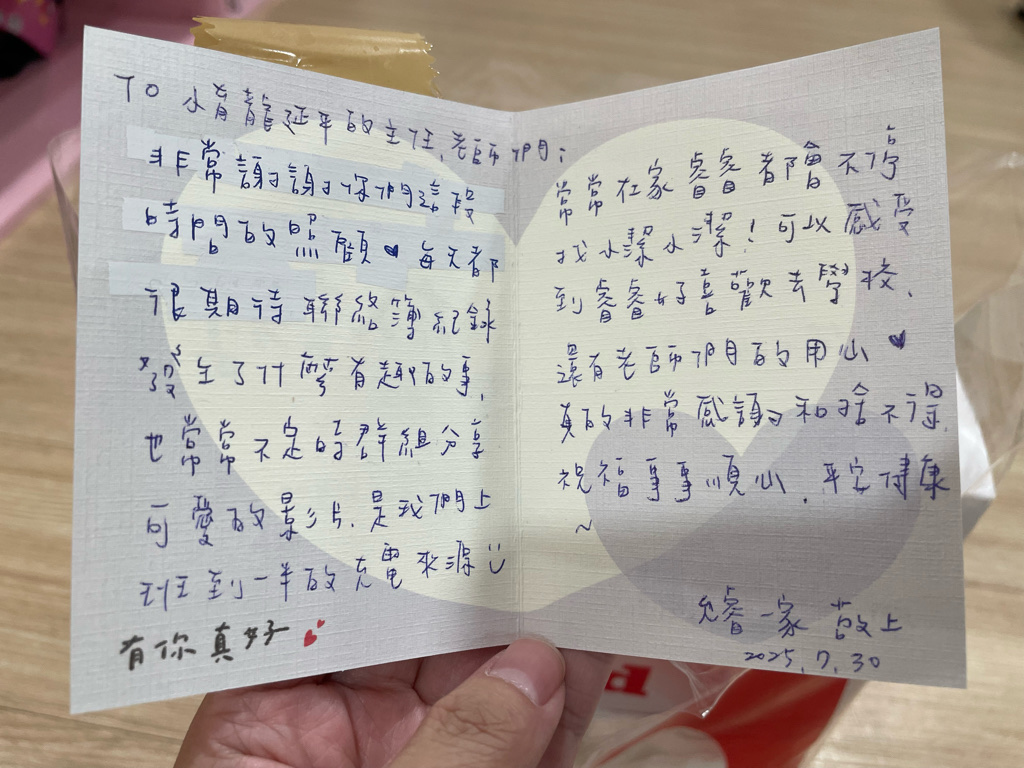 TO 小青龍延平的主任、老師們:
非常謝謝你們這段
時間的照顧♥每天都
很期待聯絡簿紀錄
發生了什麼有趣的事,
也常常不定時群組分享
可愛的影片,是我們上
班到一半的充電來源
有你真好
常常在家睿睿都會不停
找小潔小潔!可以感受
到睿睿好喜歡去學校、
還有老師們的用心♥
真的非常感謝和捨不得,
祝福事事順心、平安健康
~
允睿一家 敬上
2025.7.30